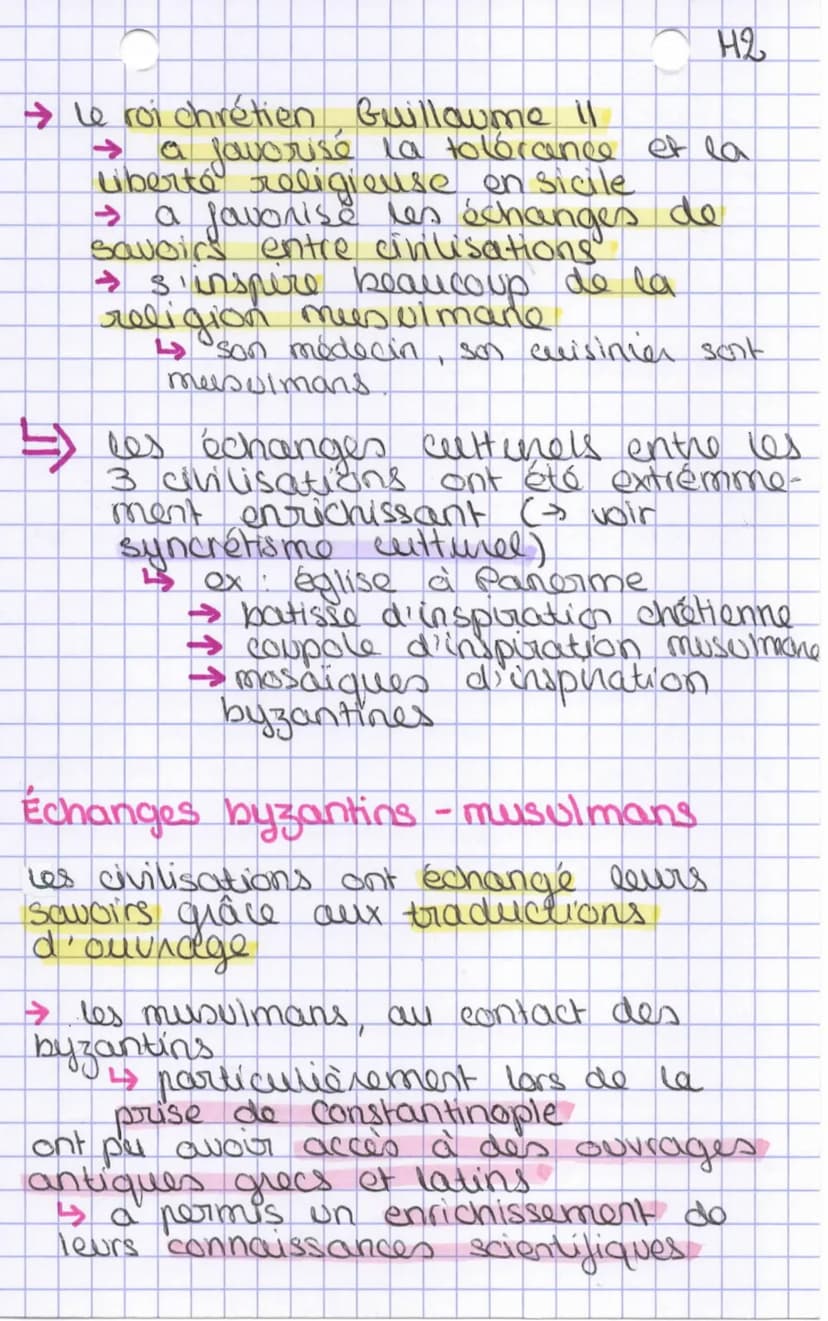 H2
→ Le roi chrétien Guillaume II
→ a favorisé la tolérance et la
liberté religieuse en Sicile
→ a favorisé les échanges de
savoirs entre civilisations
→ s'inspire beaucoup de la
religion musulmane
↳ son médecin, son cuisinier sont
musulmans.
⇒ Les échanges culturels entre les
3 civilisations ont été extrémme-
ment enrichissant (→ voir
syncrétisme culturel)
↳ ex : église à Panerme
→ batisse d'inspiration chrétienne
→ coupole d'inspiration musulmane
→ mosaïques d'inspiration
byzantines
Échanges byzantins - musulmans
Les civilisations ont échangé leurs
savoirs grâce aux traductions
d'ouvrage
→ les musulmans, au contact des
byzantins
↳ particulièrement lors de la
prise de Constantinople
ont pu avoir accès à des ouvrages
antiques grecs et latins
↳ a permis un enrichissement de
leurs connaissances scientifiques